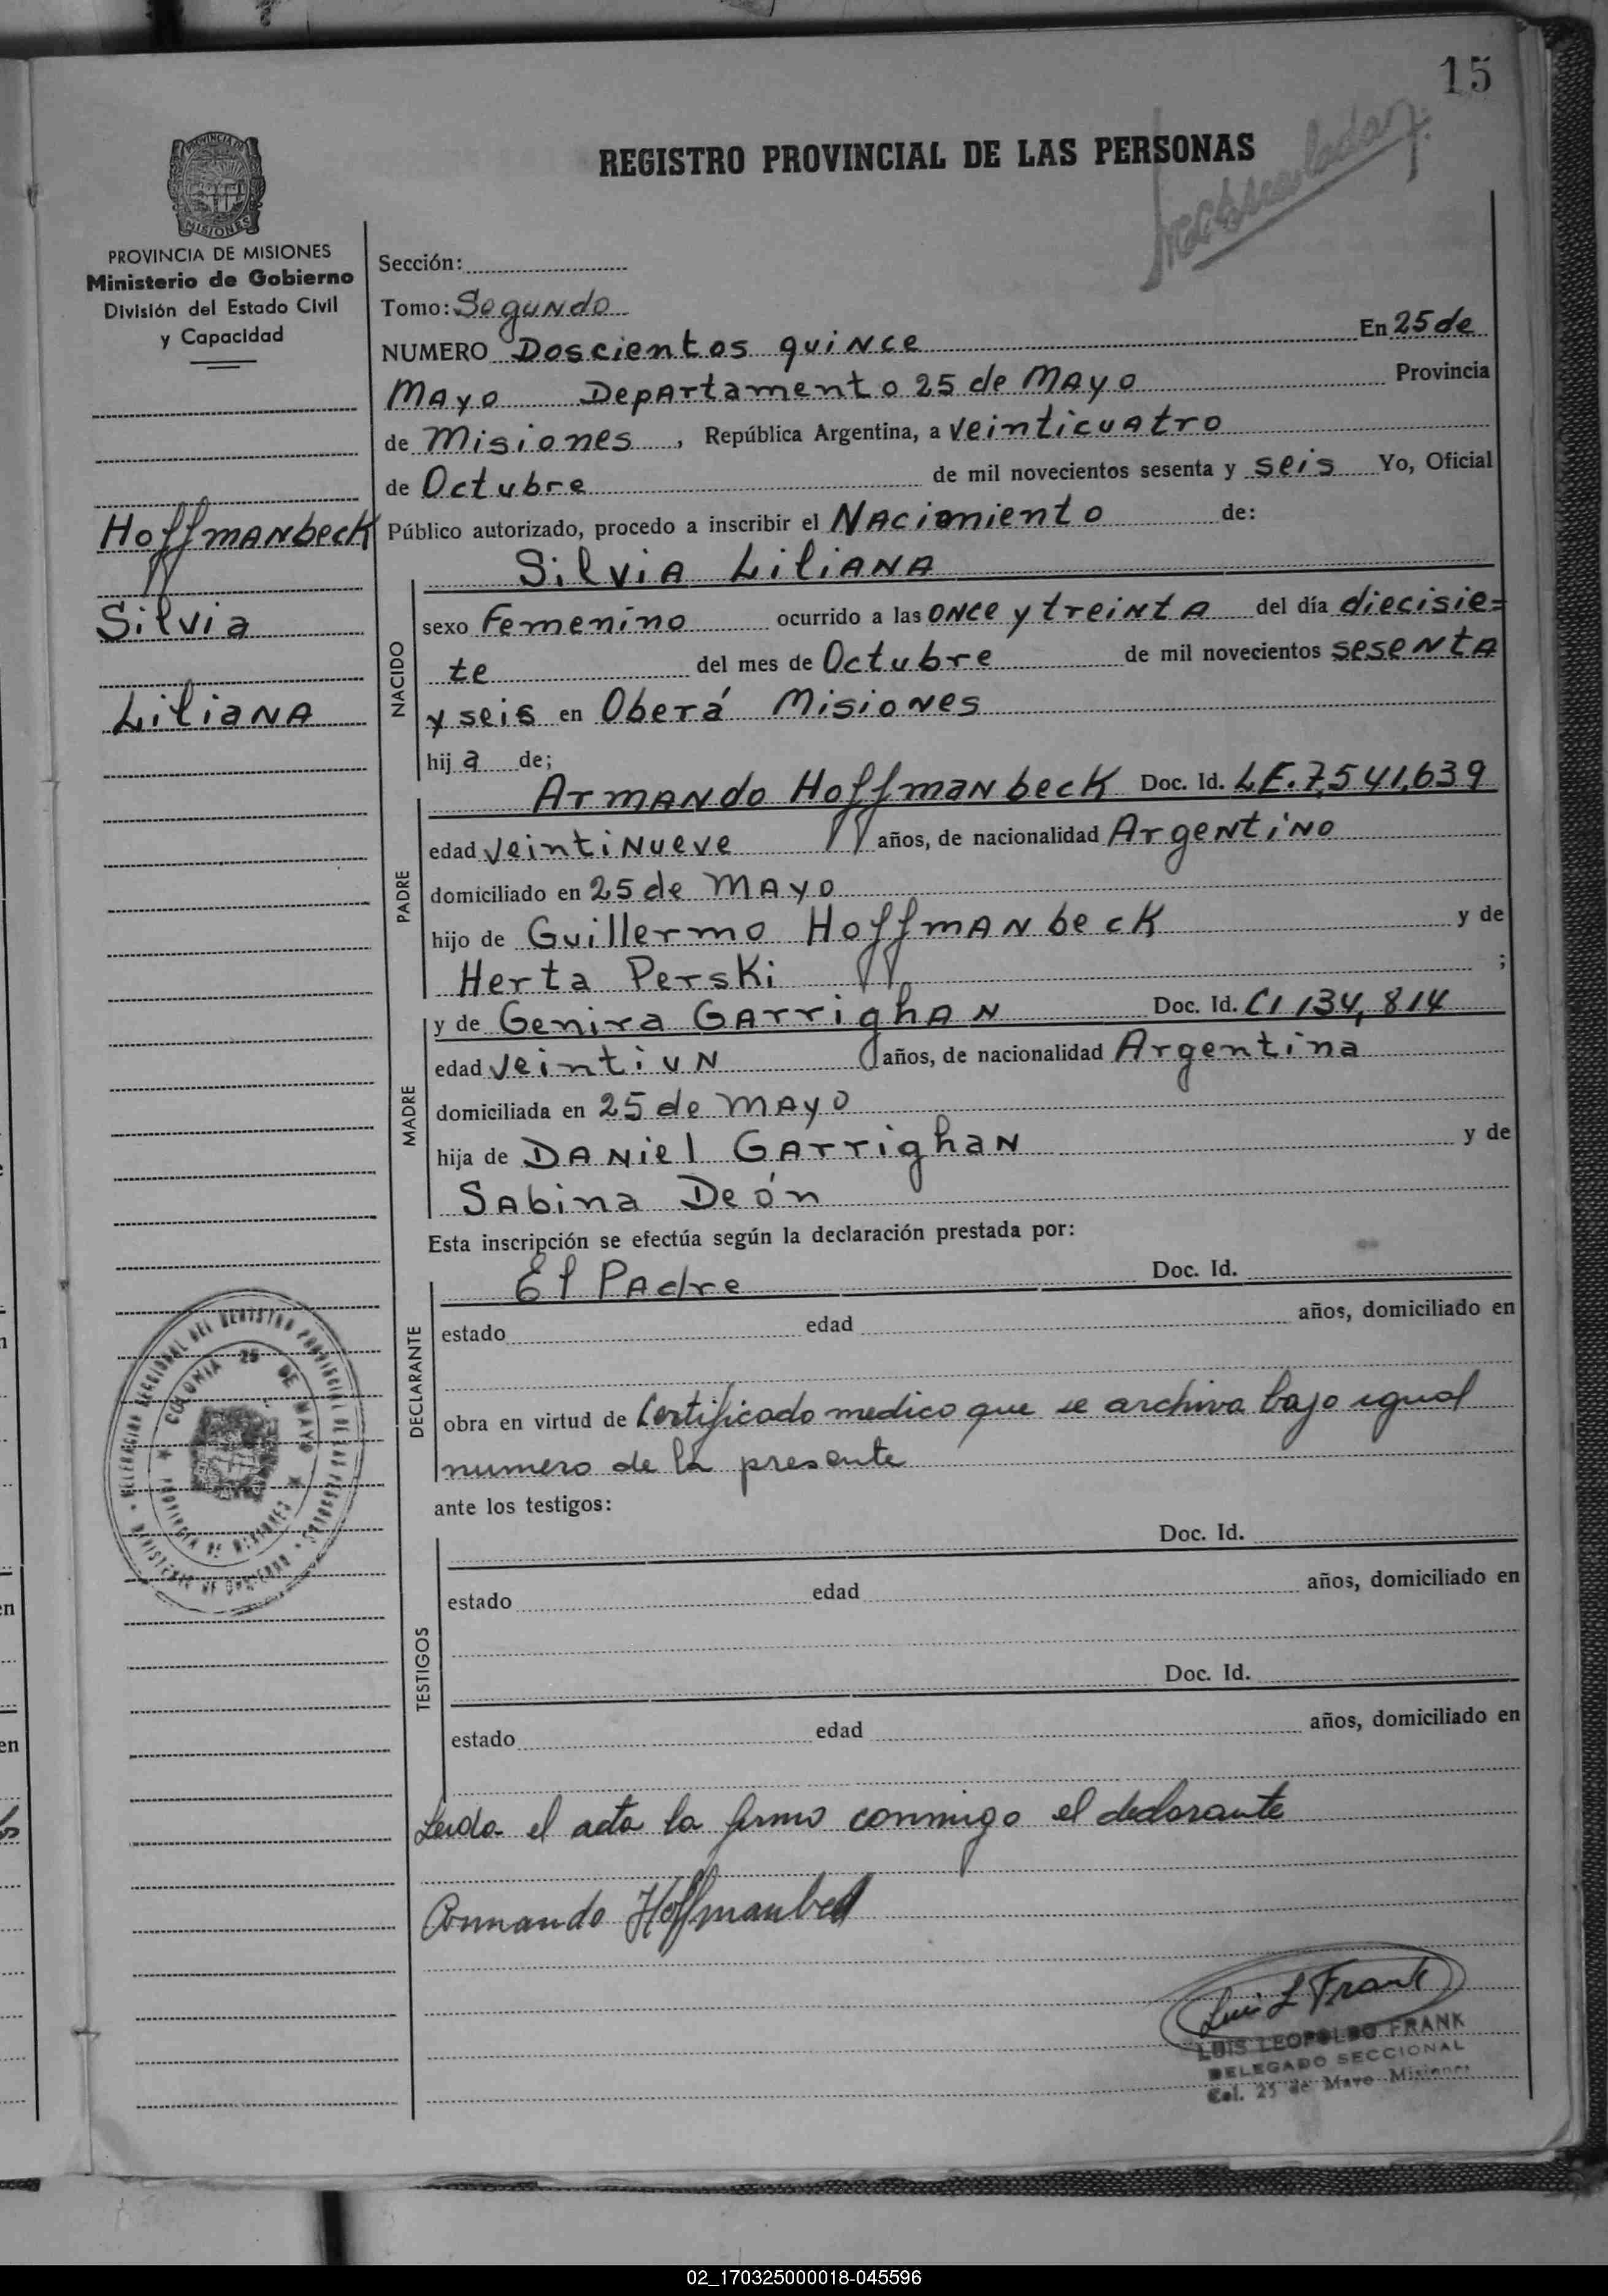 15
REGISTRO PROVINCIAL DE LAS PERSONAS
PROVINCIA DE MISIONES
Ministerio de Gobierno
División del Estado Civil
y Capacidad
Hoffmanbeck
Silvia
Liliana
Sección:
Tomo: Segundo
NUMERO Doscientos quince En 25 de
Mayo Departamento 25 de Mayo Provincia
de Misiones, República Argentina, a veinticuatro
de Octubre de mil novecientos sesenta y seis Yo, Oficial
Público autorizado, procedo a inscribir el Nacimiento de:
Silvia Liliana
NACIDO
sexo Femenino ocurrido a las once y treinta del día diecisie=
te del mes de Octubre de mil novecientos sesenta
y seis en Oberá Misiones
hija de;
PADRE
Armando Hoffmanbeck Doc. Id. LE.7,541,639
edad veintinueve años, de nacionalidad Argentino
domiciliado en 25 de Mayo
hijo de Guillermo Hoffmanbeck y de
Herta Perski ;
MADRE
y de Genira Garrighan Doc. Id. CI 134,814
edad veintiun años, de nacionalidad Argentina
domiciliada en 25 de Mayo
hija de Daniel Garrighan y de
Sabina Deón
Esta inscripción se efectúa según la declaración prestada por:
DECLARANTE
El Padre Doc. Id.
estado edad años, domiciliado en
obra en virtud de Certificado medico que se archiva bajo igual
numero de la presente
ante los testigos:
TESTIGOS
Doc. Id.
estado edad años, domiciliado en
Doc. Id.
estado edad años, domiciliado en
Leida el acta la firmo conmigo el declarante
Armando Hoffmanbeck
Luis L Frank
LUIS LEOPOLDO FRANK
DELEGADO SECCIONAL
Col. 25 de Mayo Misiones
COLONIA 25 DE MAYO
PROVINCIA DE MISIONES
02_170325000018-045596